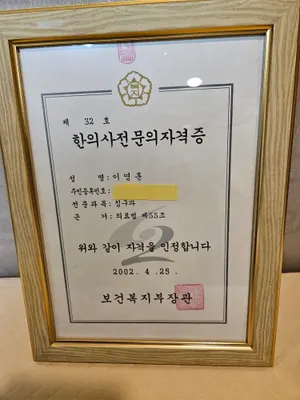 제 32 호
한의사전문의자격증
성 명: 이영훈
주민등록번호:
전문과목: 침구과
근 거: 의료법 제55조
위와 같이 자격을 인정합니다
2002. 4. 25.
보건복지부장관